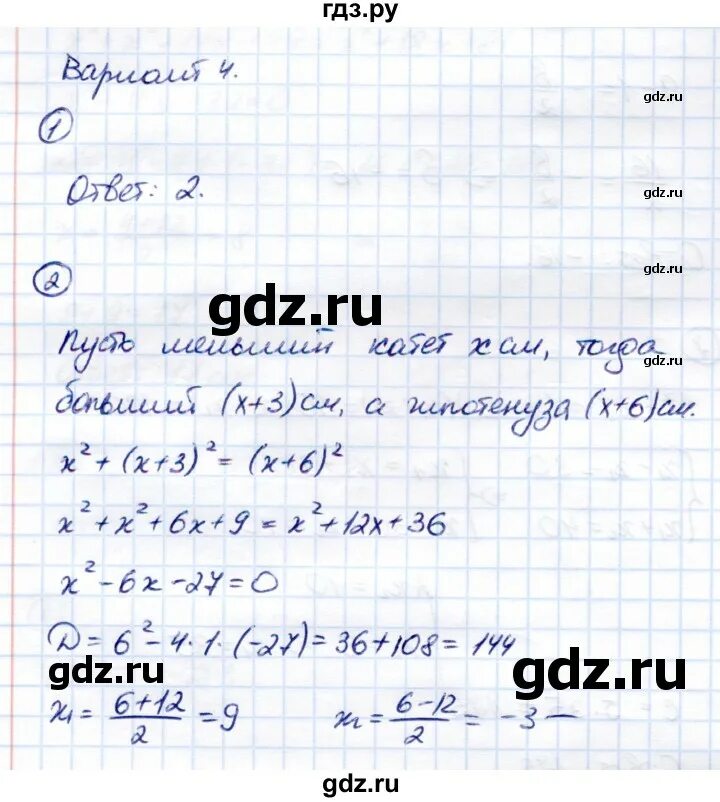 гдз.ру
Вариант 4.
gdz.ru
①
Ответ: 2.
gdz.ru
②
gdz.ru
gdz.ru
Пусть меньший катет x см, тогда
больший (x+3)см, а гипотенуза (x+6)см.
x² + (x+3)² = (x+6)²
x² + x² + 6x + 9 = x² + 12x + 36
x² - 6x - 27 = 0
D = 6² - 4·1·(-27) = 36 + 108 = 144
gdz.ru
gdz.ru
x₁ = (6+12)/2 = 9 x₂ = (6-12)/2 = -3 —
gdz.ru